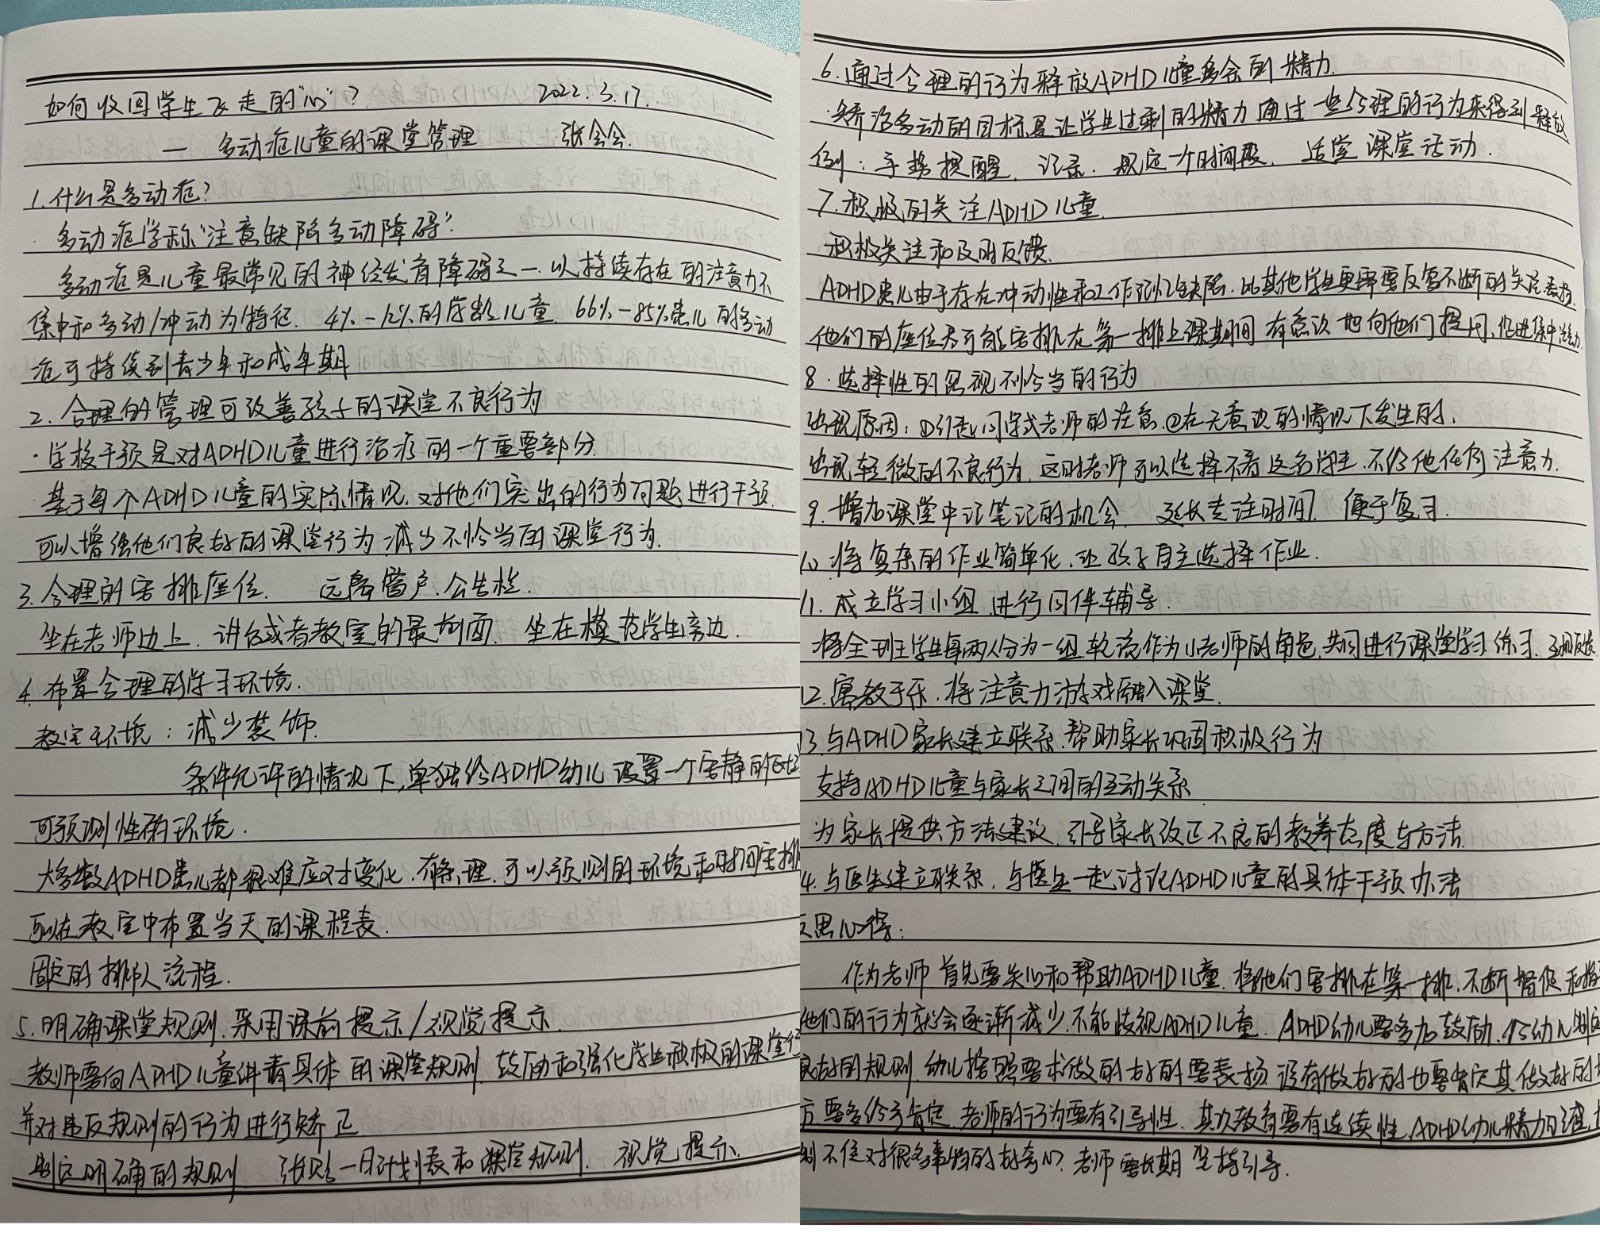 如何收回学生飞走的"心"？ 2022.3.17.
— 多动症儿童的课堂管理 张会会.
1.什么是多动症？
·多动症学称"注意缺陷多动障碍".
多动症是儿童最常见的神经发育障碍之一.以持续存在的注意力不
集中和多动/冲动为特征. 4%-12%的学龄儿童. 66%-85%患儿的多动
症可持续到青少年和成年期
2.合理的管理可改善孩子的课堂不良行为
·学校干预是对ADHD儿童进行治疗的一个重要部分.
基于每个ADHD儿童的实际情况.对他们突出的行为问题进行干预.
可以增强他们良好的课堂行为减少不恰当的课堂行为.
3.合理的安排座位. 远离窗户.公告栏.
坐在老师边上.讲台或者教室的最前面. 坐在模范学生旁边.
4.布置合理的学习环境.
教室环境:减少装饰.
条件允许的情况下,单独给ADHD幼儿设置一个安静的
可预测性的环境.
大多数ADHD患儿都很难应对变化.有条理.可以预测的环境和时间安排
可以在教室中布置当天的课程表.
固定的排队流程.
5.明确课堂规则.采用课前提示/视觉提示.
教师要向ADHD儿童讲清具体的课堂规则.鼓励和强化学生积极的课堂行
并对违反规则的行为进行矫正
制定明确的规则 张贴一日计划表和课堂规则. 视觉提示.
6.通过合理的行为释放ADHD儿童多余的精力.
·矫治多动的目标是让学生过剩的精力通过一些合理的行为来得到释放
例:手势提醒.记录.规定一个时间段. 适宜课堂活动.
7.积极的关注ADHD儿童.
积极关注和及时反馈.
ADHD患儿由于存在冲动性和工作记忆缺陷.比其他学生更需要反复不断的关注表扬.
他们的座位尽可能安排在第一排上课期间有意识地向他们提问,促进集中注意力.
8.选择性的忽视不恰当的行为
出现原因:①引起同学或老师的注意.②在无意识的情况下发生的.
出现轻微的不良行为.这时老师可以选择不看这名学生.不给他任何注意力.
9.增加课堂中记笔记的机会. 延长专注时间. 便于复习.
10.将复杂的作业简单化.让孩子自主选择作业.
11.成立学习小组.进行同伴辅导.
将全班学生每两人分为一组,轮流作为小老师的角色,共同进行课堂学习练习.
12.寓教于乐.将注意力游戏融入课堂.
3.与ADHD家长建立联系.帮助家长巩固积极行为
支持ADHD儿童与家长之间的互动关系
为家长提供方法建议.引导家长改正不良的教养态度与方法.
4.与医生建立联系.与医生一起讨论ADHD儿童的具体干预办法
反思心得:
作为老师首先要关心和帮助ADHD儿童.将他们安排在第一排.不断督促和指
他们的行为就会逐渐减少.不能歧视ADHD儿童. ADHD幼儿要多加鼓励.与幼儿制定
良好的规则.幼儿按照要求做的好的要表扬.没有做好的也要肯定其做好的地
方.要多给予肯定.老师的行为要有引导性.其次教育要有连续性.ADHD幼儿精力
不住对很多事物的好奇心.老师要长期坚持引导.